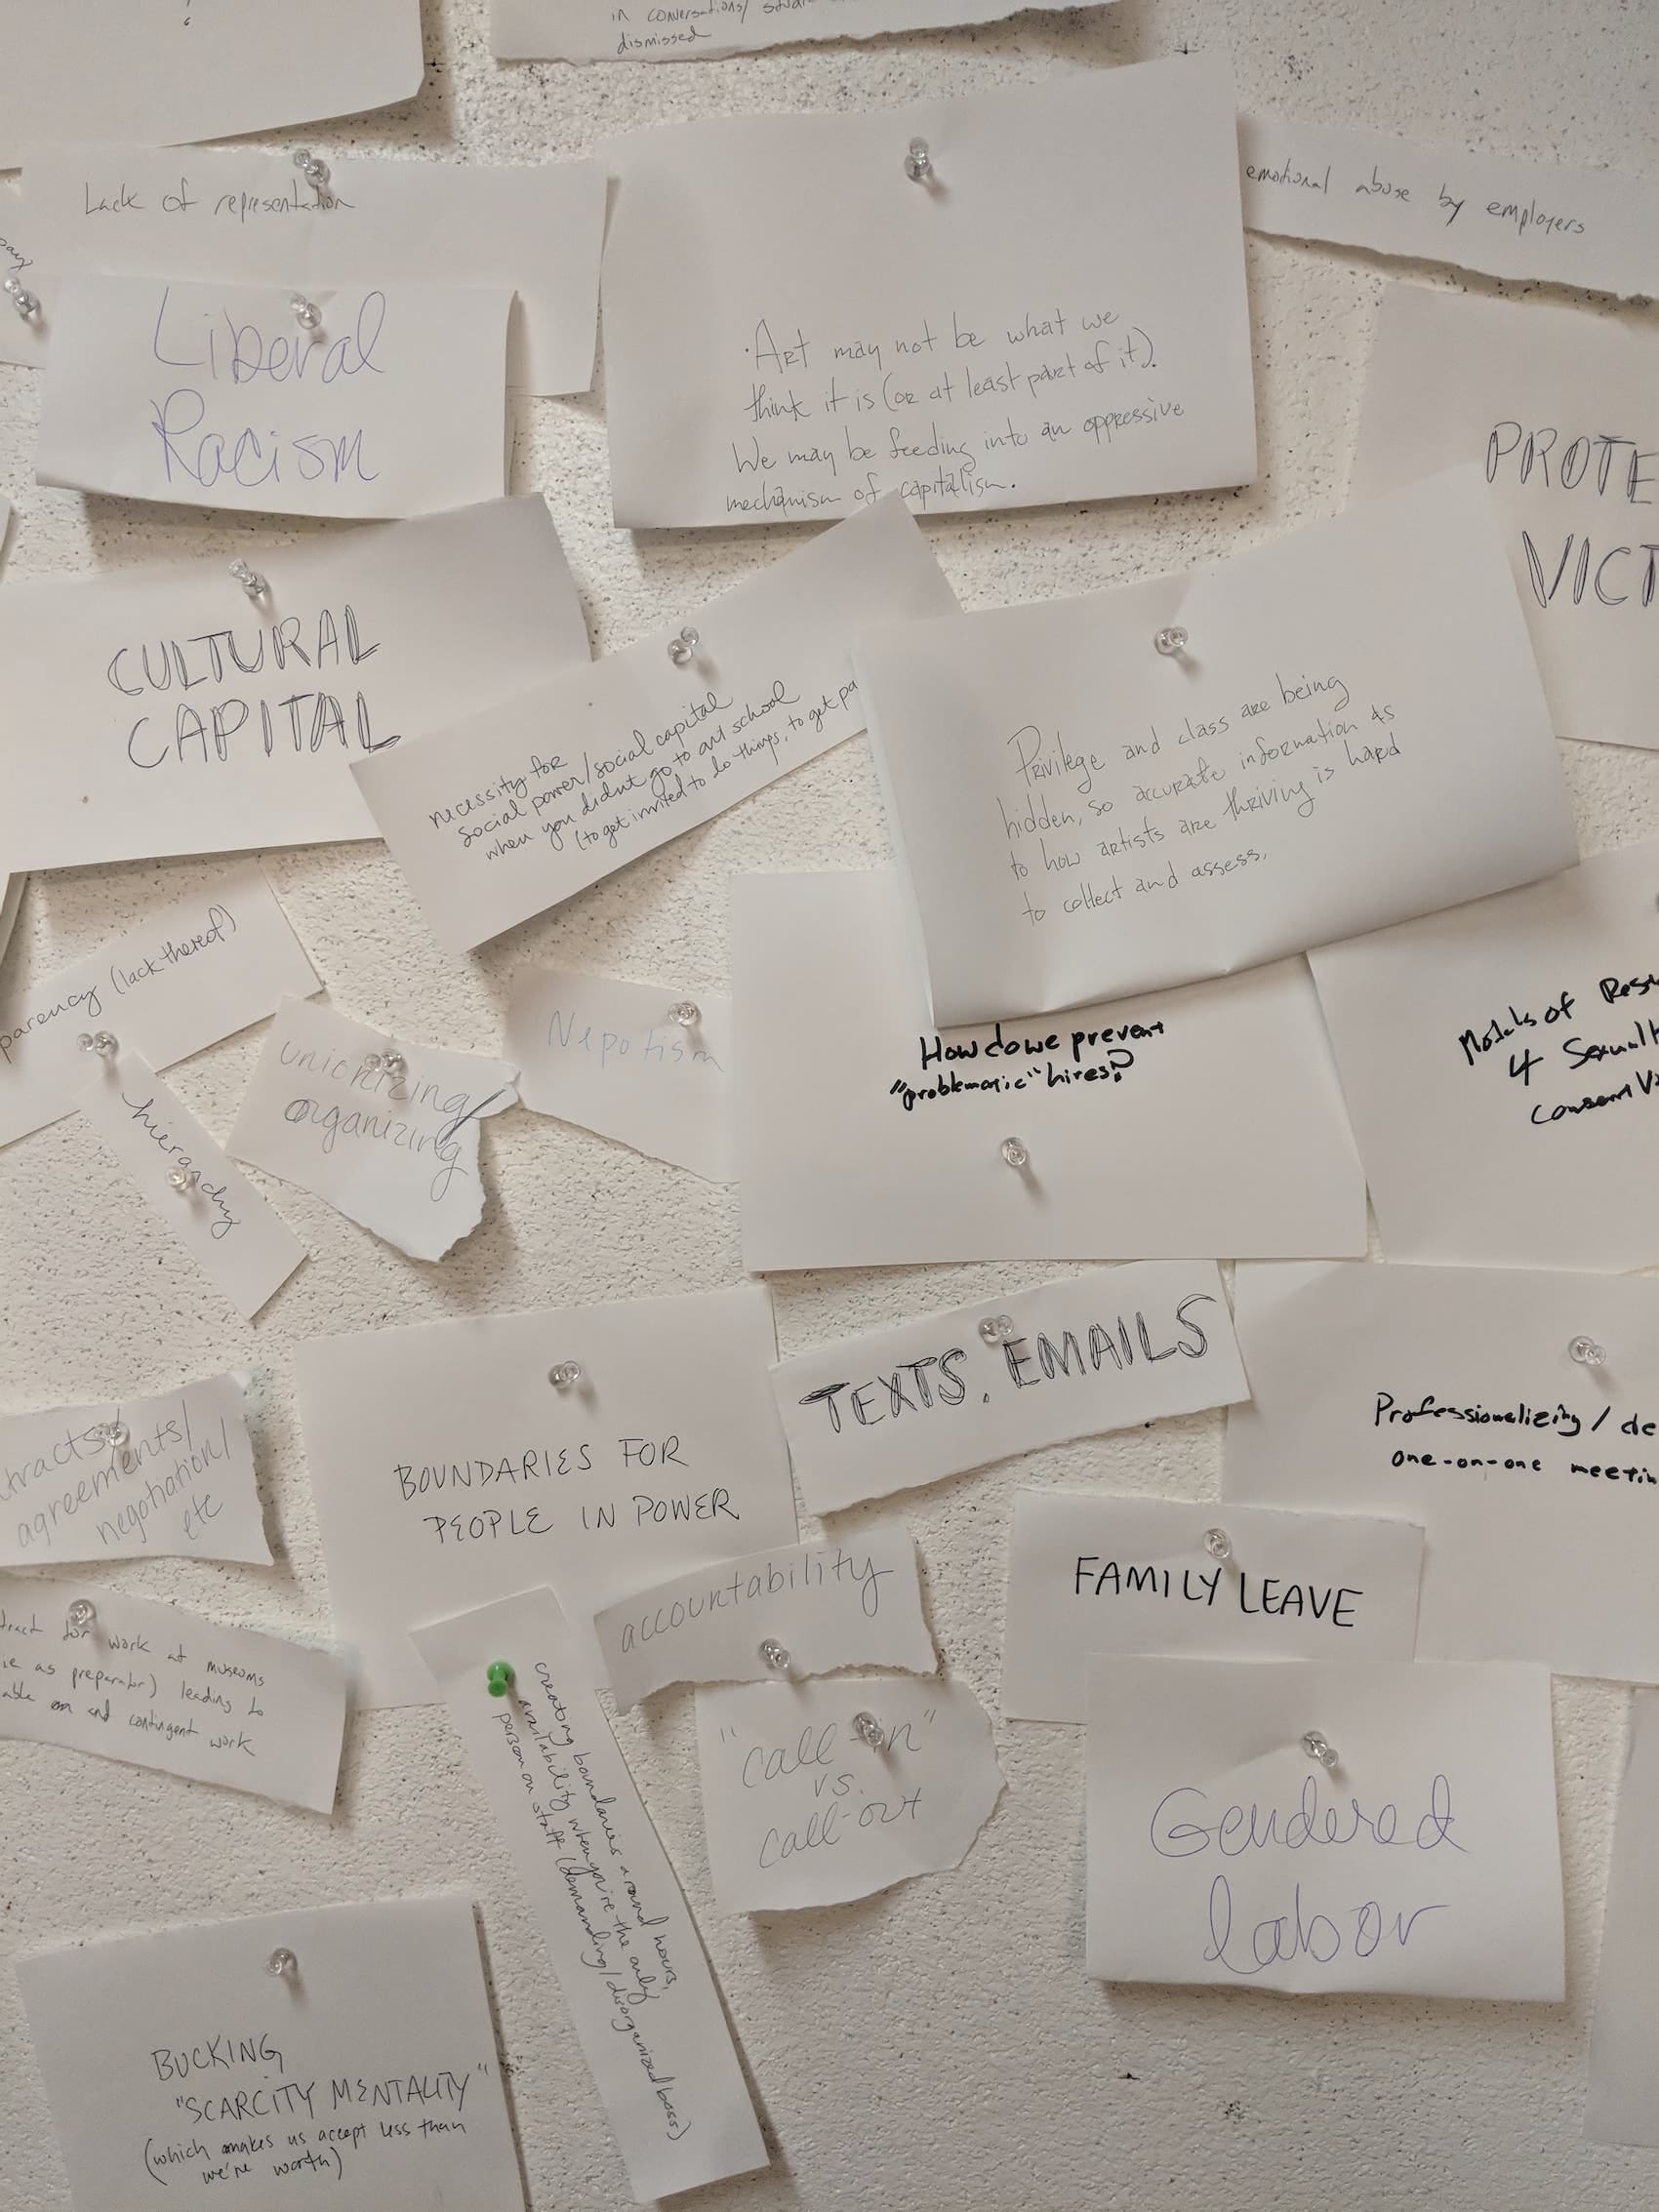 in conversations/
dismissed
Lack of representation
emotional abuse by employers
pay
Liberal
Racism
·Art may not be what we
think it is (or at least part of it).
We may be feeding into an oppressive
mechanism of capitalism.
PROTE
VICT
CULTURAL
CAPITAL
necessity for
social power/social capital
when you didnt go to art school
(to get invited to do things, to get pa
Privilege and class are being
hidden, so accurate information as
to how artists are thriving is hard
to collect and assess.
parency (lack thereof)
hierarchy
unionizing/
organizing
Nepotism
How do we prevent
"problematic" hires?
Models of Res
4 Sexual
TEXTS, EMAILS
tracts/
agreements/
negotiation/
etc
BOUNDARIES FOR
PEOPLE IN POWER
Professionalizing / de
one-on-one meetin
FAMILY LEAVE
accountability
tract for work at museums
ie as preparator) leading to
able and contingent work
creating boundaries around hours,
availability when you're the only
person on staff (demanding/disorganized boss)
"call-in"
vs.
call-out
Gendered
labor
BUCKING
"SCARCITY MENTALITY"
(which makes us accept less than
we're worth)